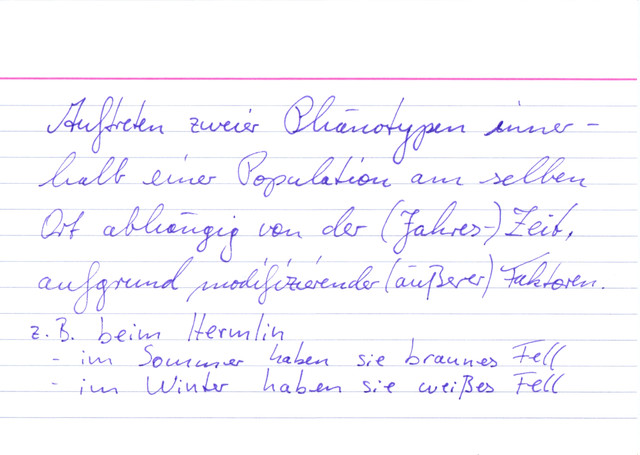 Auftreten zweier Phänotypen inner-
halb einer Population am selben
Ort abhängig von der (Jahres-) Zeit,
aufgrund modifizierender (äußerer) Faktoren.
z.B. beim Hermlin
- im Sommer haben sie braunes Fell
- im Winter haben sie weißes Fell